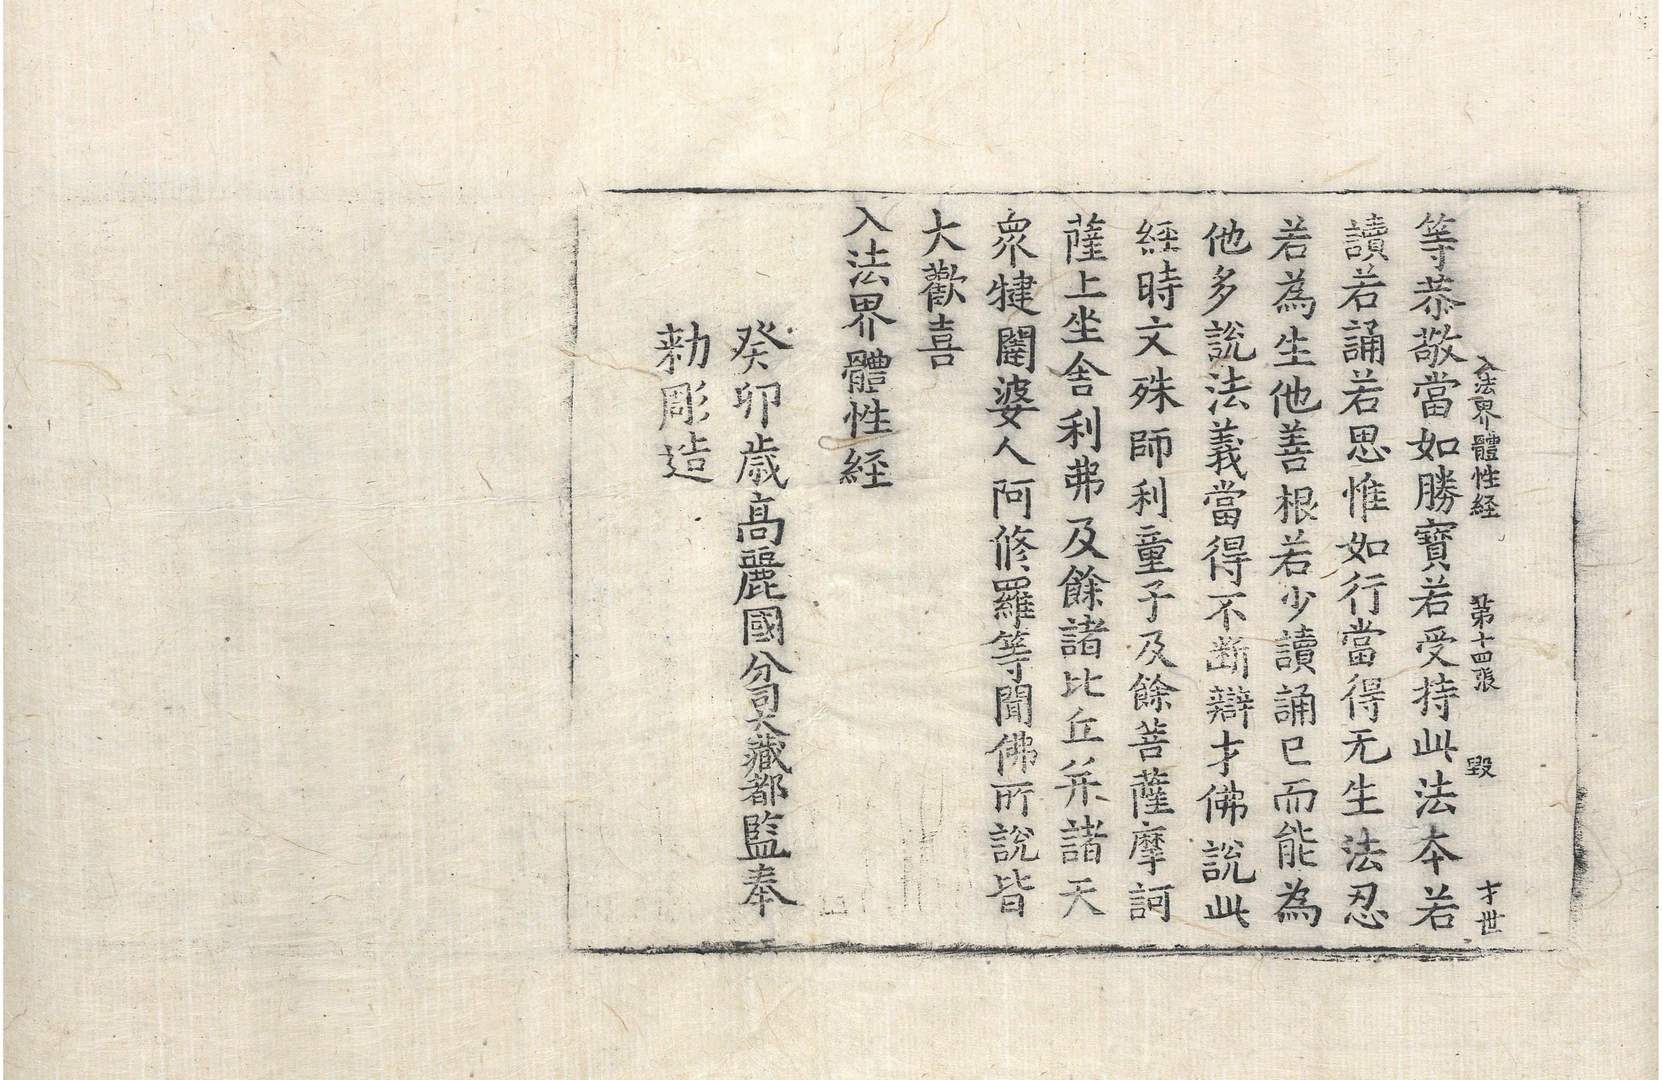 入法界體性経 第十四張 毀 才世
等恭敬當如勝寶若受持此法本若
讀若誦若思惟如行當得无生法忍
若為生他善根若少讀誦已而能為
他多說法義當得不斷辯才佛說此
経時文殊師利童子及餘菩薩摩訶
薩上坐舍利弗及餘諸比丘并諸天
衆犍闥婆人阿修羅等聞佛所說皆
大歡喜
入法界體性経
癸卯歲高麗國分司大藏都監奉
勅彫造